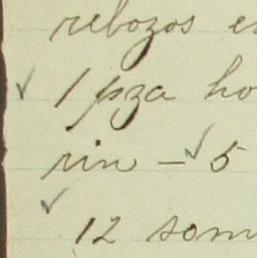 rebozos e
✓ 1 pza ho
rin - ✓ 5
✓ 12 som